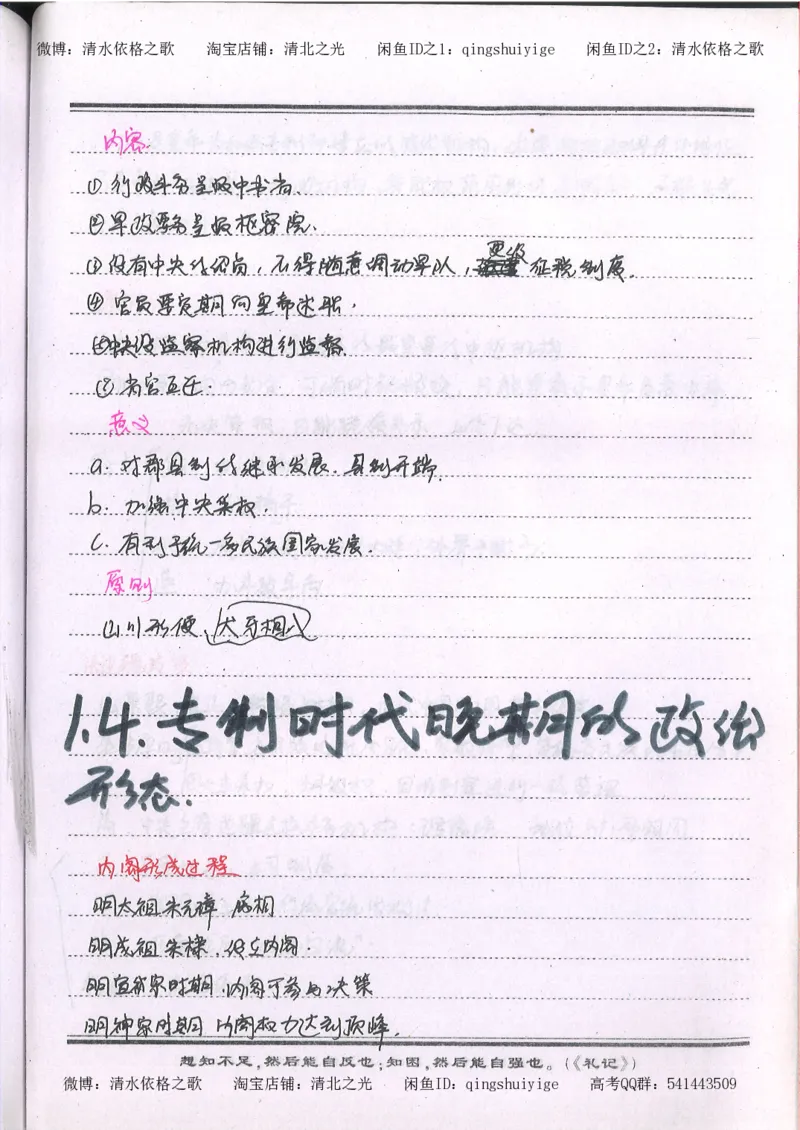 微博：清水依格之歌 淘宝店铺：清北之光 闲鱼ID之1：qingshuiyige 闲鱼ID之2：清水依格之歌
内容
① 行政事务呈报中书省.
② 军政要务呈报枢密院.
③ 没有中央线绍岗，不得随意调动军队，更改 征税制度.
④ 官员要定期向皇帝述职.
⑤中央设监察机构进行监督.
⑥ 省官互迁.
意义
a. 对郡县制代继承发展. 县制开端.
b. 加强中央集权.
c. 有利于统一多民族国家发展.
原则
山川形便、犬牙相入
1.4. 专制时代晚期的政治
形态.
内阁形成过程
明太祖朱元璋 废相
明成祖朱棣，设立内阁.
明宣宗时期，内阁可参与决策
明神宗时期 内阁权力达到顶峰.
想知不足，然后能自反也；知困，然后能自强也。（《礼记》）
微博：清水依格之歌 淘宝店铺：清北之光 闲鱼ID：qingshuiyige 高考QQ群：541443509